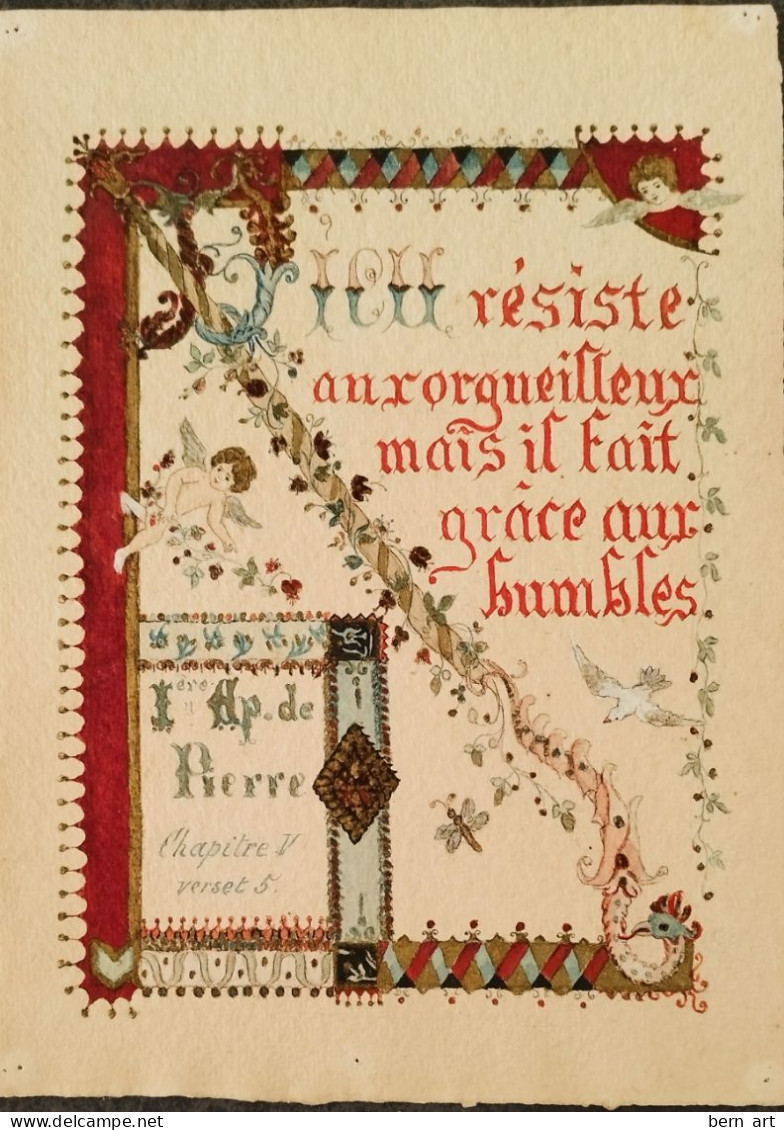 Dieu résiste
aux orgueilleux
mais il fait
grâce aux
humbles
1ère Ap. de
Pierre
Chapitre V
verset 5.
bern art